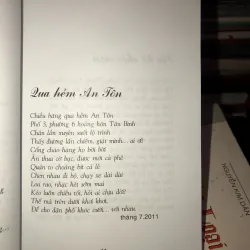 Qua hẻm An Tôn
Chiều hàng qua hẻm An Tôn
Phố 3, phường 6 hoàng hôn Tân Bình
Chân lần xuyên suốt lộ trình
Thấy đường lấn chiếm, giật mình... ai dè
Cống chào hàng họ bốt bốt
Ăn thua cờ bạc, được mời cà phê
Quán to choáng hết cả lề
Chen nhau đi bộ, chạy xe dài dài
Loa rao, nhạc hét sớm mai
Kéo luôn chiều tối, hỏi ai chịu đời?
Thế mà trên dưới khơi khơi
Để cho dân phố khóc cười... với nhau.
tháng 7.2011